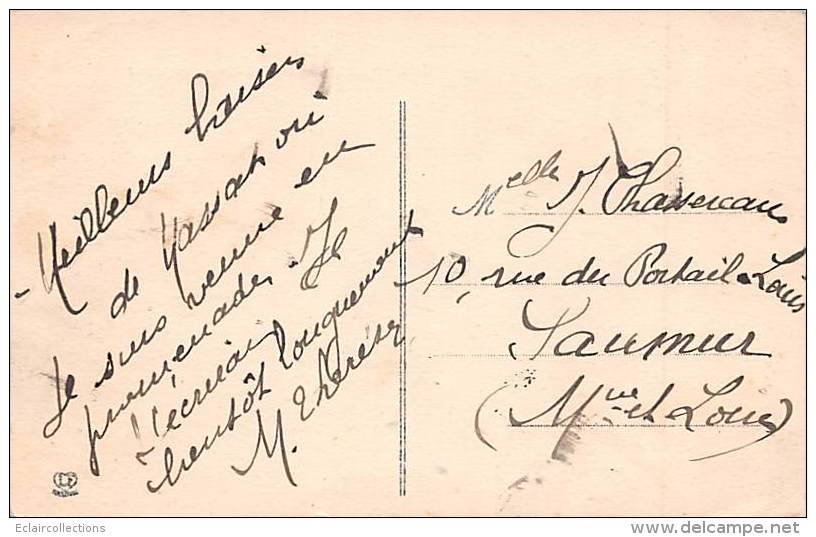 Meilleurs baisers
de Massat où
je suis venue en
promenade. Je
t'écrirai
bientôt longuement
M. Thérèse
Melle J. Chassereau
10, rue du Portail Louis
Saumur
(Mne et Loire)
Eclaircollections
www.delcampe.net